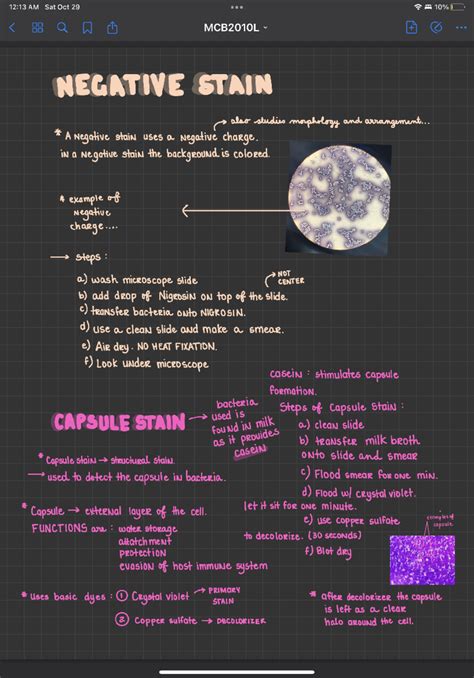 12:13 AM Sat Oct 29
10%
MCB2010L
NEGATIVE STAIN
also studies morphology and arrangement...
* A negative stain uses a negative charge.
in a negative stain the background is colored.
* example of
negative
charge....
→ steps :
a) wash microscope slide
NOT
CENTER
b) add drop of Nigrosin on top of the slide.
c) transfer bacteria onto NIGROSIN.
d) use a clean slide and make a smear.
e) Air dry. NO HEAT FIXATION.
f) Look under microscope
CAPSULE STAIN →
bacteria
used is
found in milk
as it provides
casein
casein : stimulates capsule
formation.
Steps of Capsule Stain :
a) clean slide
b) transfer milk broth
onto slide and smear
c) Flood smear for one min.
d) Flood w/ crystal violet.
let it sit for one minute.
e) use copper sulfate
to decolorize. (30 seconds)
f) Blot dry
* Capsule stain → structural stain.
→ used to detect the capsule in bacteria.
* Capsule → external layer of the cell.
FUNCTIONS are : water storage
attatchment
protection
evasion of host immune system
examples of
capsule
* uses basic dyes : ① Crystal violet → PRIMARY
STAIN
② Copper sulfate → DECOLORIZER
* after decolorizer the capsule
is left as a clear
halo around the cell.